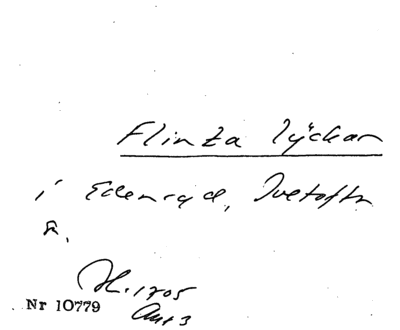 Flinta lyckan
i Edenryd, Ivetofta
sn.
H. 1705
Akt 3
Nr 10779